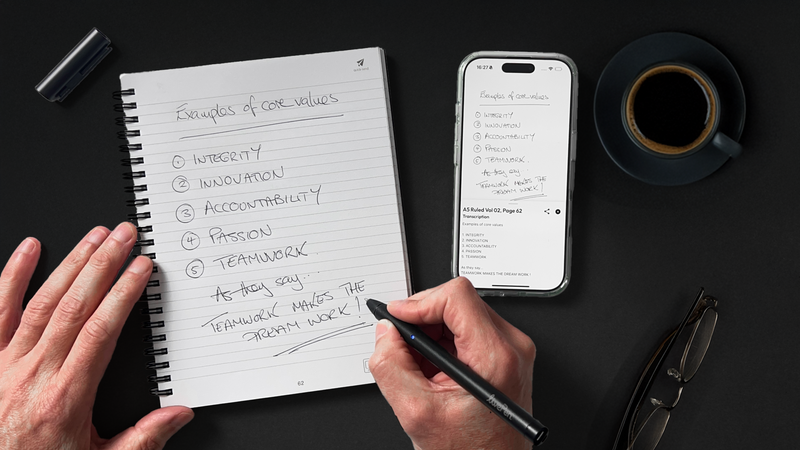 Examples of core values
1 INTEGRITY
2 INNOVATION
3 ACCOUNTABILITY
4 PASSION
5 TEAMWORK
As they say...
TEAMWORK MAKES THE
DREAM WORK!
62
16:27
Examples of core values
1 INTEGRITY
2 INNOVATION
3 ACCOUNTABILITY
4 PASSION
5 TEAMWORK.
As they say...
TEAMWORK MAKES THE
DREAM WORK!
A5 Ruled Vol 02, Page 62
Transcription
Examples of core values
1. INTEGRITY
2. INNOVATION
3. ACCOUNTABILITY
4. PASSION
5. TEAMWORK
As they say
TEAMWORK MAKES THE DREAM WORK !